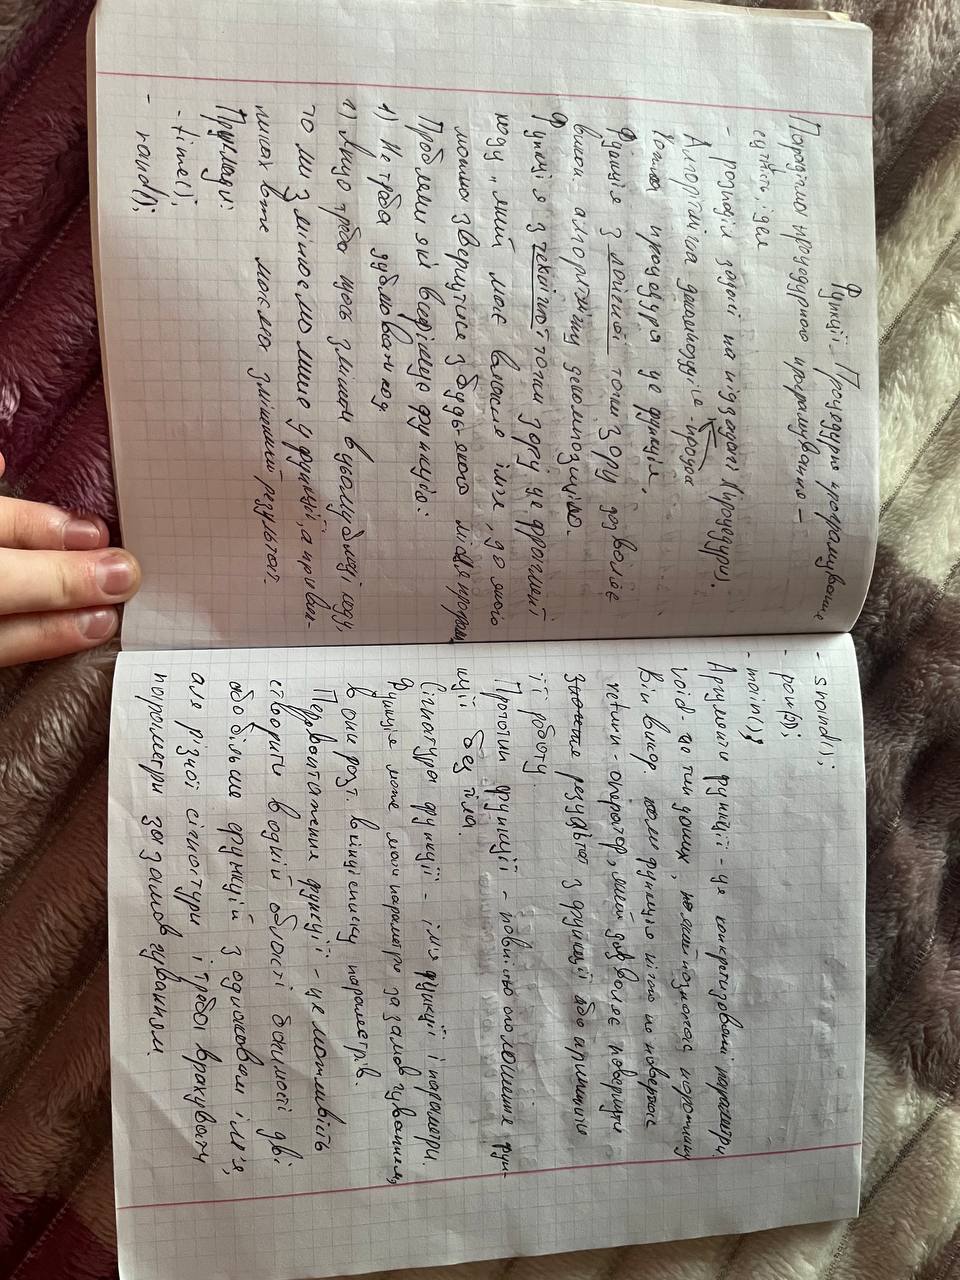 Функції. Процедурне програмування
Парадигма процедурного програмування –
сутність ідея
- розподіл задачі на підзадачі (процедури).
Алгоритмічна декомпозиція
процедура це функція,
Функція з логічної точки зору дозволяє
викон алгоритмічну декомпозицію.
Функція з технічної точки зору це фрагмент
коду, який має власне ім'я, до якого
можна звернутися з будь-якого місця програми
Проблеми які вирішує функція:
1) Не треба дублювати код
2) Якщо треба щось змінити в цьому блоці коду,
то ми змінюємо лише у функції, а при викли-
ках вже маємо змінений результат.
Приклади:
- time();
- rand();
- srand();
- pow();
- main();
Аргументи функції - це конкретизовані параметри.
void - це тип даних, який позначає порожнечу
Він викор. коли функція нічого не повертає
return - оператор, який дозволяє повернути
результат з функції або припинити
її роботу.
Прототип функції - повністю оголошення фун-
кції без тіла.
Сигнатура функції - ім'я функції і параметри.
Функція може мати параметри за замовчуванням,
вони розт. в кінці списку параметрів.
Перевантаження функції - це можливість
створити в одній області видимості дві
або більше функцій з однаковим ім'я,
але різної сигнатури і треба врахувати
параметри за замовчуванням.